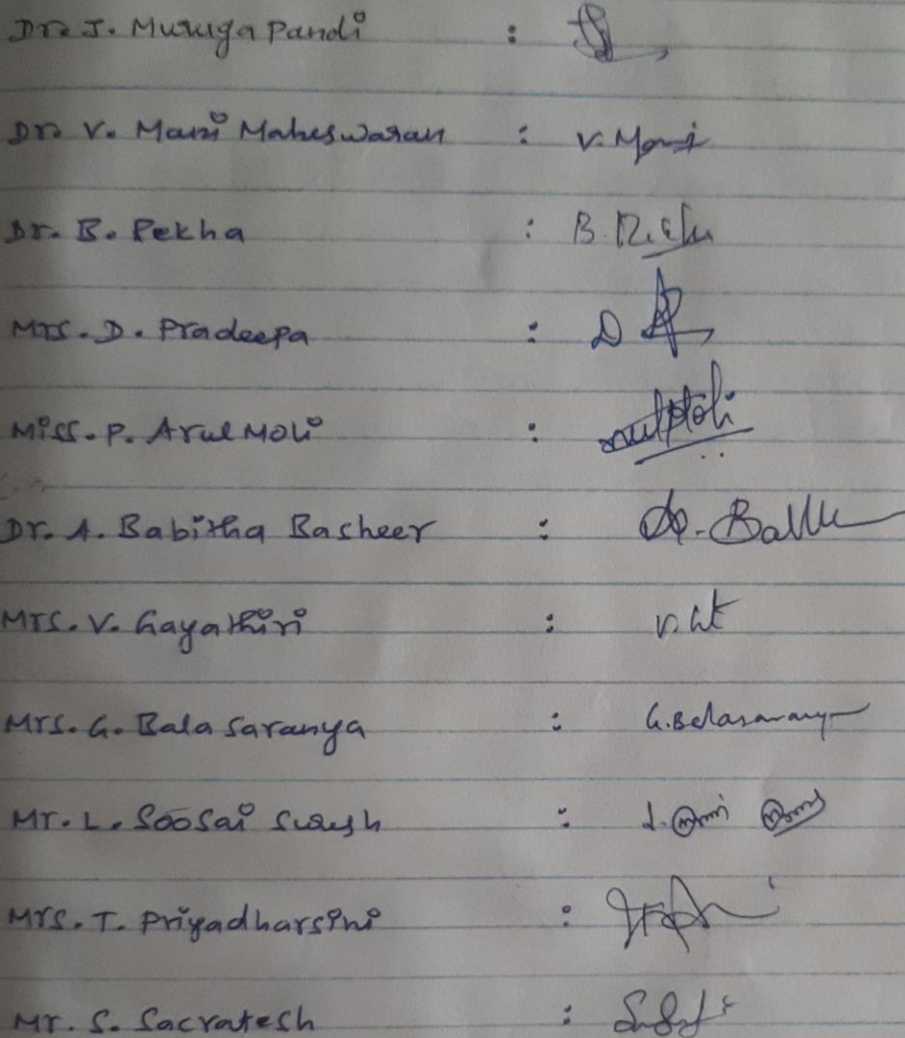 Dr. J. Muruga Pandi :
Dr. V. Mani Maheswaran : V. Mani
Dr. B. Rekha : B. Rekha
Mrs. D. Pradeepa : D
Miss. P. Arul Moli :
Dr. A. Babitha Basheer : A.
Mrs. V. Gayathiri :
Mrs. G. Bala Saranya : G. Balasaranya
Mr. L. Soosai Suresh :
Mrs. T. Priyadharsini :
Mr. S. Sacratesh :